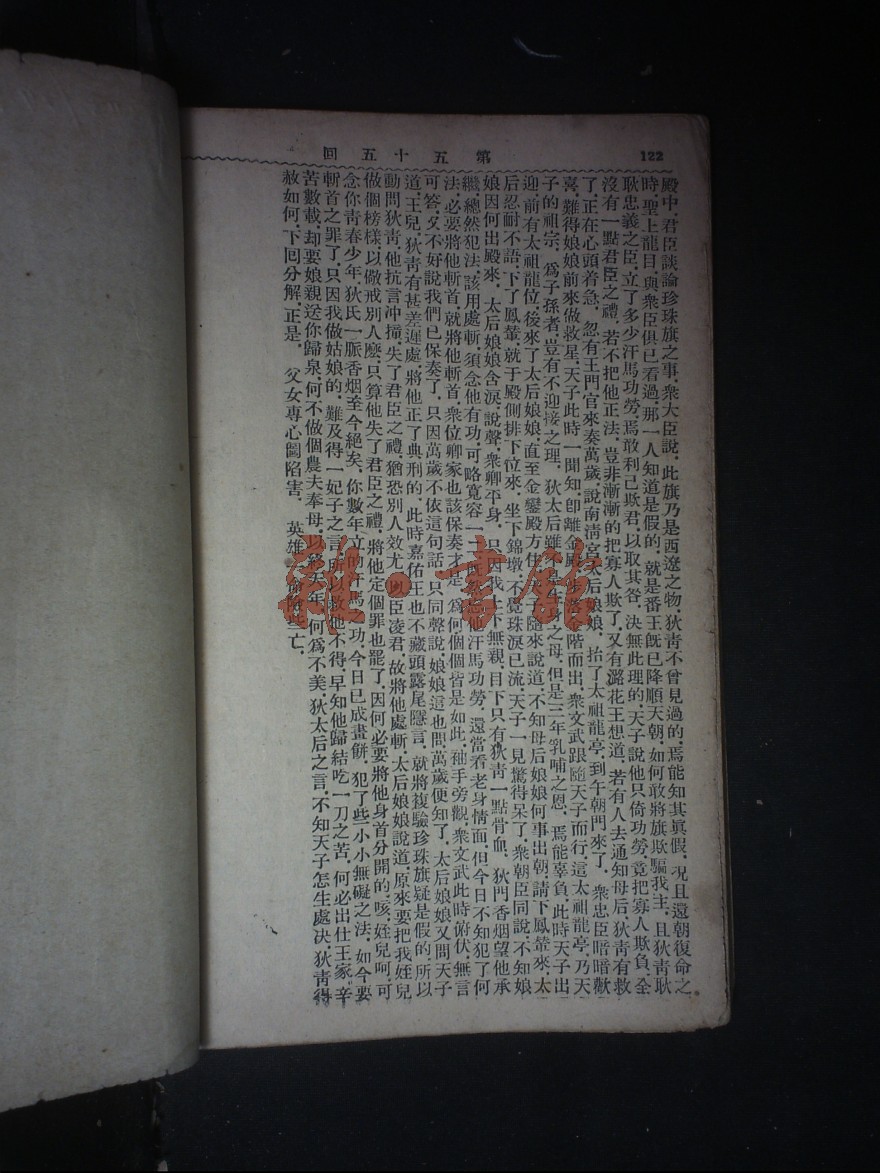 第五十五回
122
殿中,君臣談論珍珠旗之事,衆大臣說,此旗乃是西遼之物,狄靑不曾見過的,焉能知其眞假,况且還朝復命之
時,聖上龍目,與衆臣俱已看過,那一人知道是假的,就是番王旣已降順天朝,如何敢將旗欺騙我主,且狄靑耿
耿忠義之臣,立了多少汗馬功勞,焉敢利己欺君,以取其咎,决無此理的,天子說他只倚功勞,竟把寡人欺負,全
沒有一點君臣之禮,若不把他正法,豈非漸漸的把寡人欺了,又有潞花王想道,若有人去通知母后,狄靑有救
了,正在心頭着急,忽有王門官來奏萬歲,說南淸宮太后娘娘,抬了太祖龍亭,到午朝門來了,衆忠臣暗暗歡
喜,難得娘娘前來做救星,天子此時一聞知,卽離金殿,步落金階而出,衆文武跟隨天子而行,這太祖龍亭,乃天
子的祖宗,爲子孫者,豈有不迎接之理,狄太后雖不是生身之母,但是三年乳哺之恩,焉能辜負,此時天子出
迎,前有太祖龍位,後來了太后娘娘,直至金鑾殿方住,天子隨來說道,不知母后娘娘何事出朝,請下鳳輦來,太
后忍耐不語,下了鳳輦,就于殿側排下位來,坐下錦墩,不覺珠淚已流,天子一見驚得呆了,衆朝臣同說,不知娘
娘因何出殿來,太后娘娘含淚,說聲,衆卿平身,只因我上下無親,目下只有狄靑一點骨血,狄門香烟望他承
繼,總然犯法,該用處斬,須念他有功可略寬容一二,旣然忘他汗馬功勞,還當看老身情面,但今日不知犯了何
法,必要將他斬首,就將他斬首,衆位卿家也該保奏才是,爲何個個皆是如此,袖手旁觀,衆文武此時俯伏,無言
可答,又不好說我們已保奏了,只因萬歲不依這句話,只同聲說,娘娘這也問萬歲便知了,太后娘娘又問天子
道,王兒,狄靑有甚差遲處,將他正了典刑的,此時嘉佑王也不藏頭露尾隱言,就將複驗珍珠旗疑是假的,所以
動問狄靑,他抗言冲撞,失了君臣之禮,猶恐別人效尤,以臣凌君,故將他處斬,太后娘娘說道,原來要把我姪兒
做個榜樣,以儆戒別人麽,只算他失了君臣之禮,將他定個罪也罷了,因何必要將他身首分開的,咳,姪兒呵,可
念你靑春少年,狄氏一脈香烟至今絕矣,你數年立的汗馬功,今日已成畫餅,犯了些小小無礙之法,如今要
斬首之罪了,只因我做姑娘的,難及得一妃子之言,所以救他不得,早知他歸結吃一刀之苦,何必出仕王家,辛
苦數載,却要娘親送你歸泉,何不做個農夫奉母,以終天年,何爲不美,狄太后之言,不知天子怎生處决,狄靑得
赦如何,下囘分解,正是, 父女專心圖陷害, 英雄
亡,
雜·書館